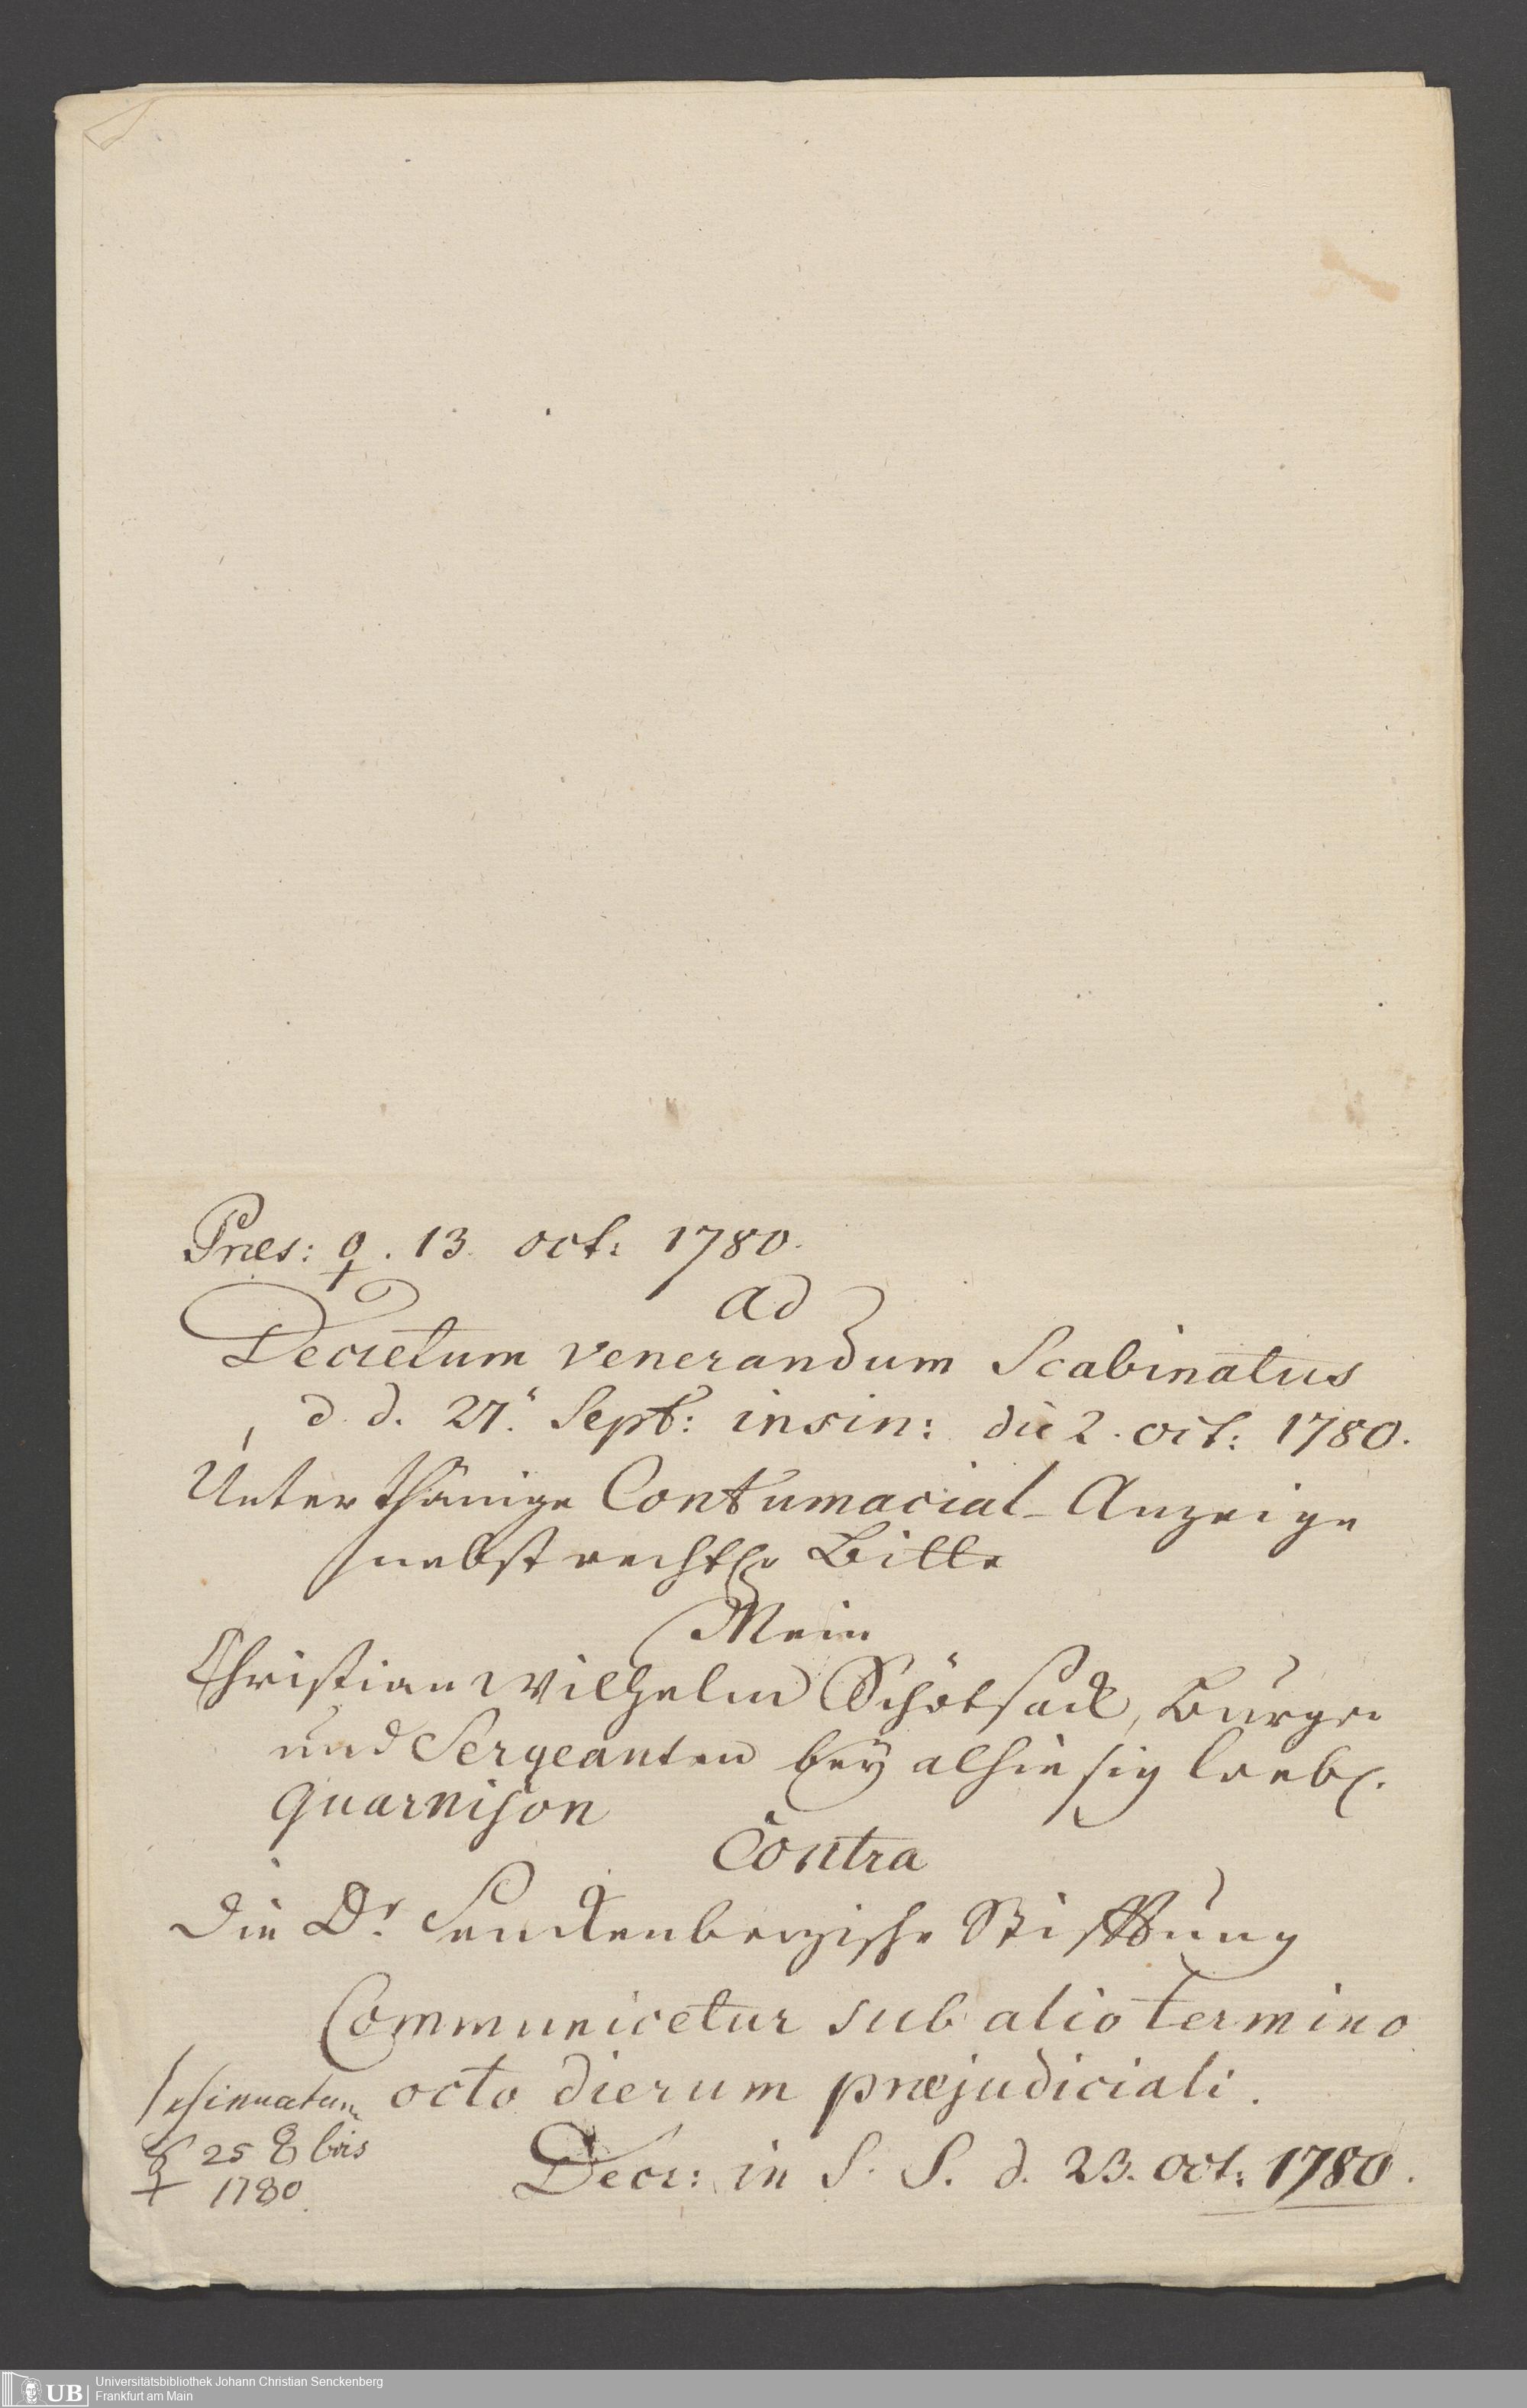 Præs: ♀. 13. oct: 1780.
ad
Decretum venerandum Scabinatus
d. d. 27. Sept: insin: die 2. oct: 1780.
Unterthänige Contumacial-Anzeige
nebst rechtl. Bitte
Mein
Christian Wilhelm Schötsack, Burger
und Sergeanten bey alhiesig loebl.
Guarnison
Contra
die Dr. Senckenbergische Stifftung
Communicetur sub alio termino
octo dierum præjudiciali.
Insinuatum
☿ 25 8bris
1780.
Decr: in S. S. d. 23. oct: 1780.
UB Universitätsbibliothek Johann Christian Senckenberg
Frankfurt am Main